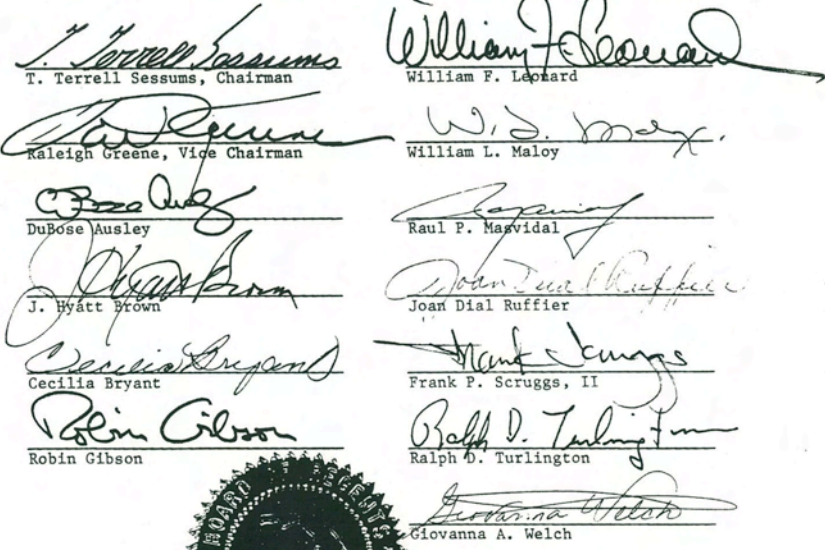 T. Terrell Sessums
T. Terrell Sessums, Chairman
Raleigh Greene, Vice Chairman
DuBose Ausley
DuBose Ausley
J. Hyatt Brown
J. Hyatt Brown
Cecilia Bryant
Cecilia Bryant
Robin Gibson
Robin Gibson
William F. Leonard
William F. Leonard
W. L. Maloy
William L. Maloy
Raul P. Masvidal
Joan Dial Ruffier
Joan Dial Ruffier
Frank Scruggs
Frank P. Scruggs, II
Ralph D. Turlington
Ralph D. Turlington
Giovanna Welch
Giovanna A. Welch
BOARD OF REGENTS